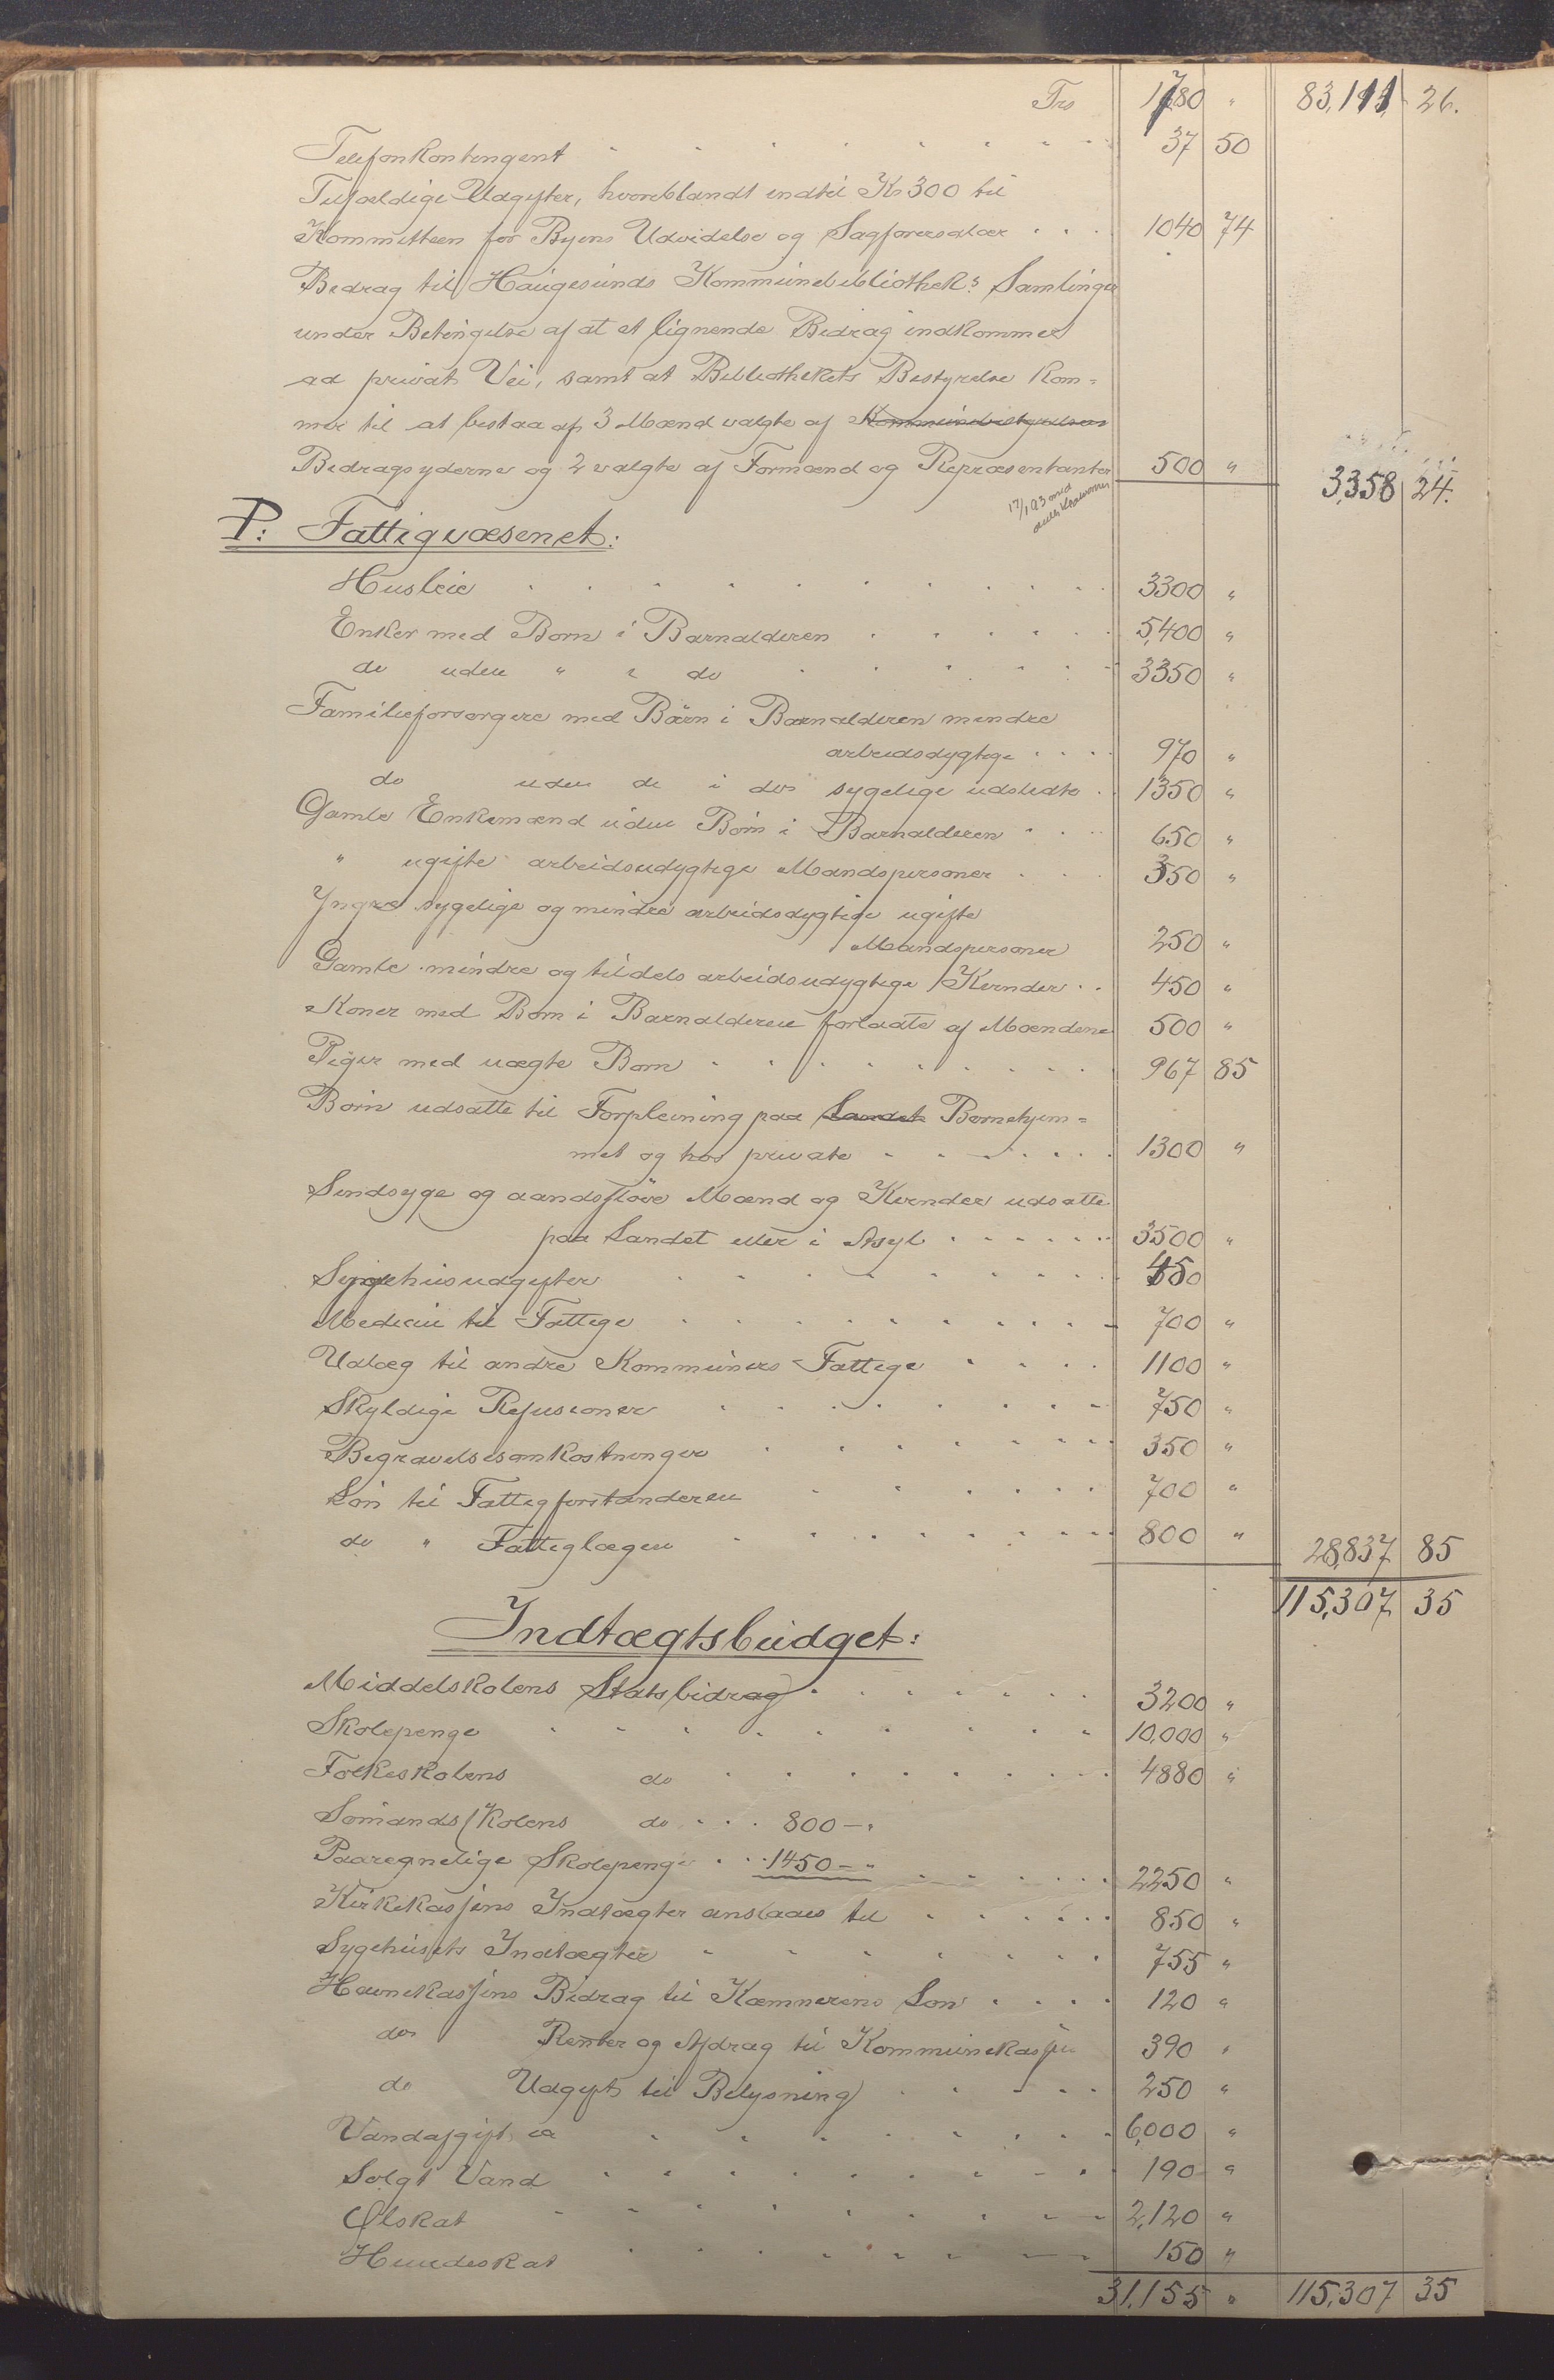 Trs 1780 " 83,111 26.
Telefonkontingent 37 50
Tilfældige Udgifter, hvoriblandt indtil Kr 300 til
Kommitteen for Byens Udvidelse og Sagførersalær 1040 74
Bedrag til Haugesunds Kommunebibliothek's Samlinger
under Betingelse af at et lignende Bidrag indkommer
ad privat Vei, samt at Bibliothekets Bestyrelse kom-
mer til at bestaa af 3 Mænd valgte af Kommunebestyrelsen
Bedragsyderne og 2 valgte af Formænd og Repræsentanter 500 " 3,358 24.
17/1 93 med
P: Fattigvæsenet:
Husleie 3300 "
Enker med Børn i Barnalderen 5,400 "
do uden " i do 3350 "
Familieforsørgere med Börn i Barnalderen mindre
arbeidsdygtige 970 "
do uden do i do sygelige udslidte 1350 "
Gamle Enkemænd uden Börn i Barnalderen 650 "
" ugifte arbeidsudygtige Mandspersoner 350 "
Yngre sygelige og mindre arbeidsdygtige ugifte
Mandspersoner 250 "
Gamle mindre og tildels arbeidsudygtige Kvinder 450 "
Koner med Børn i Barnalderen forladte af Mændene 500 "
Piger med uægte Børn 967 85
Börn udsatte til Forpleining paa Landet Barnehjem-
met og hos private 1300 "
Sindsyge og aandsslöve Mænd og Kvinder udsatte
paa Landet eller i Asyl 3500 "
Sygehusudgifter 450
Medicin til Fattige 700 "
Udlæg til andre Kommuners Fattige 1100 "
Skyldige Refusioner 750 "
Begravelsesomkostninger 350 "
Løn til Fattigforstanderen 700 "
do " Fattiglægen 800 " 28,837 85
115,307 35
Indtægtsbudget:
Middelskolens Statsbidrag 3200 "
Skolepenge 10,000 "
Folkeskolens do 4880 "
Sömandsskolens do 800 - "
Paaregnelige Skolepenge 1450 - " 2250 "
Kirkekassens Indtægter anslaaes til 850 "
Sygehusets Indtægter 755 "
Havnekassens Bidrag til Kæmnerens Løn 120 "
do Renter og Afdrag til Kommunekassen 390 "
do Udgift til Belysning 250 "
Vandafgift ca 6,000 "
Solgt Vand 190 "
Ølskat 2,120 "
Hundeskat 150 "
31,155 " 115,307 35